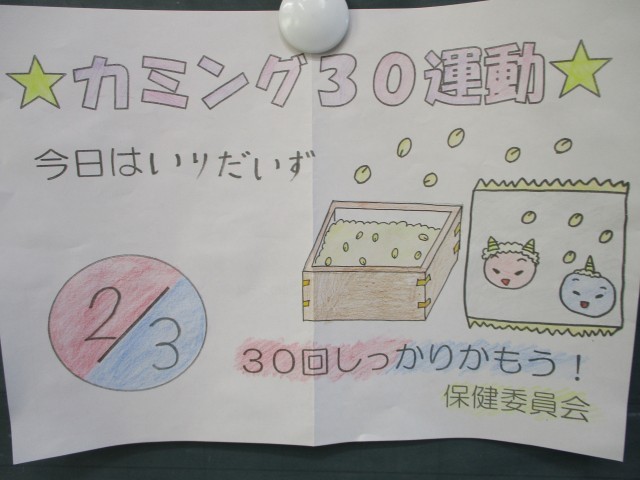 ★カミング３０運動★
今日はいりだいず
2/3
３０回しっかりかもう！
保健委員会